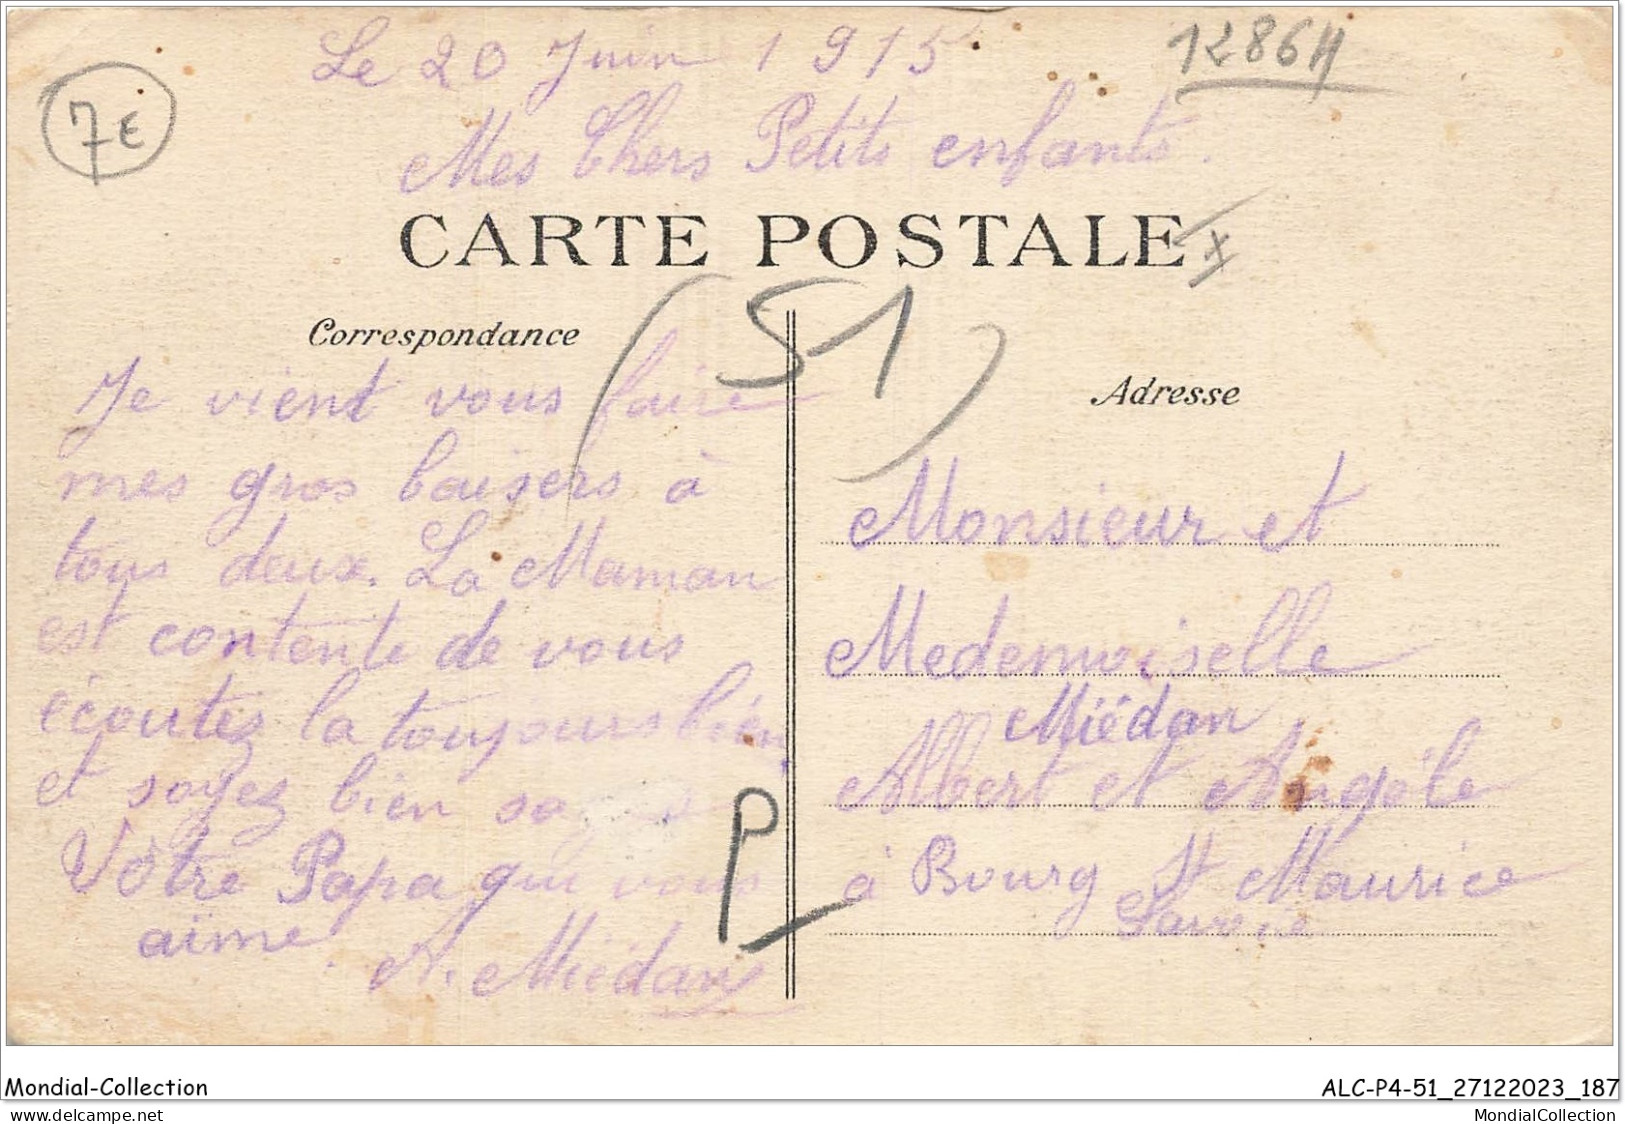 Le 20 Juin 1915
1286H
7E
Mes Chers Petits enfants.
CARTE POSTALE
(51)
Correspondance
Je vient vous faire
mes gros baisers à
tous deux. La Maman
est contente de vous
écoutez la toujours bien
et soyez bien sages
Vôtre Papa qui vous
aime.
A. Miédan
P
Adresse
Monsieur et
Medemoiselle
Miédan
Albert et Angèle
à Bourg St Maurice
Savoie
Mondial-Collection
ALC-P4-51_27122023_187
www.delcampe.net
MondialCollection